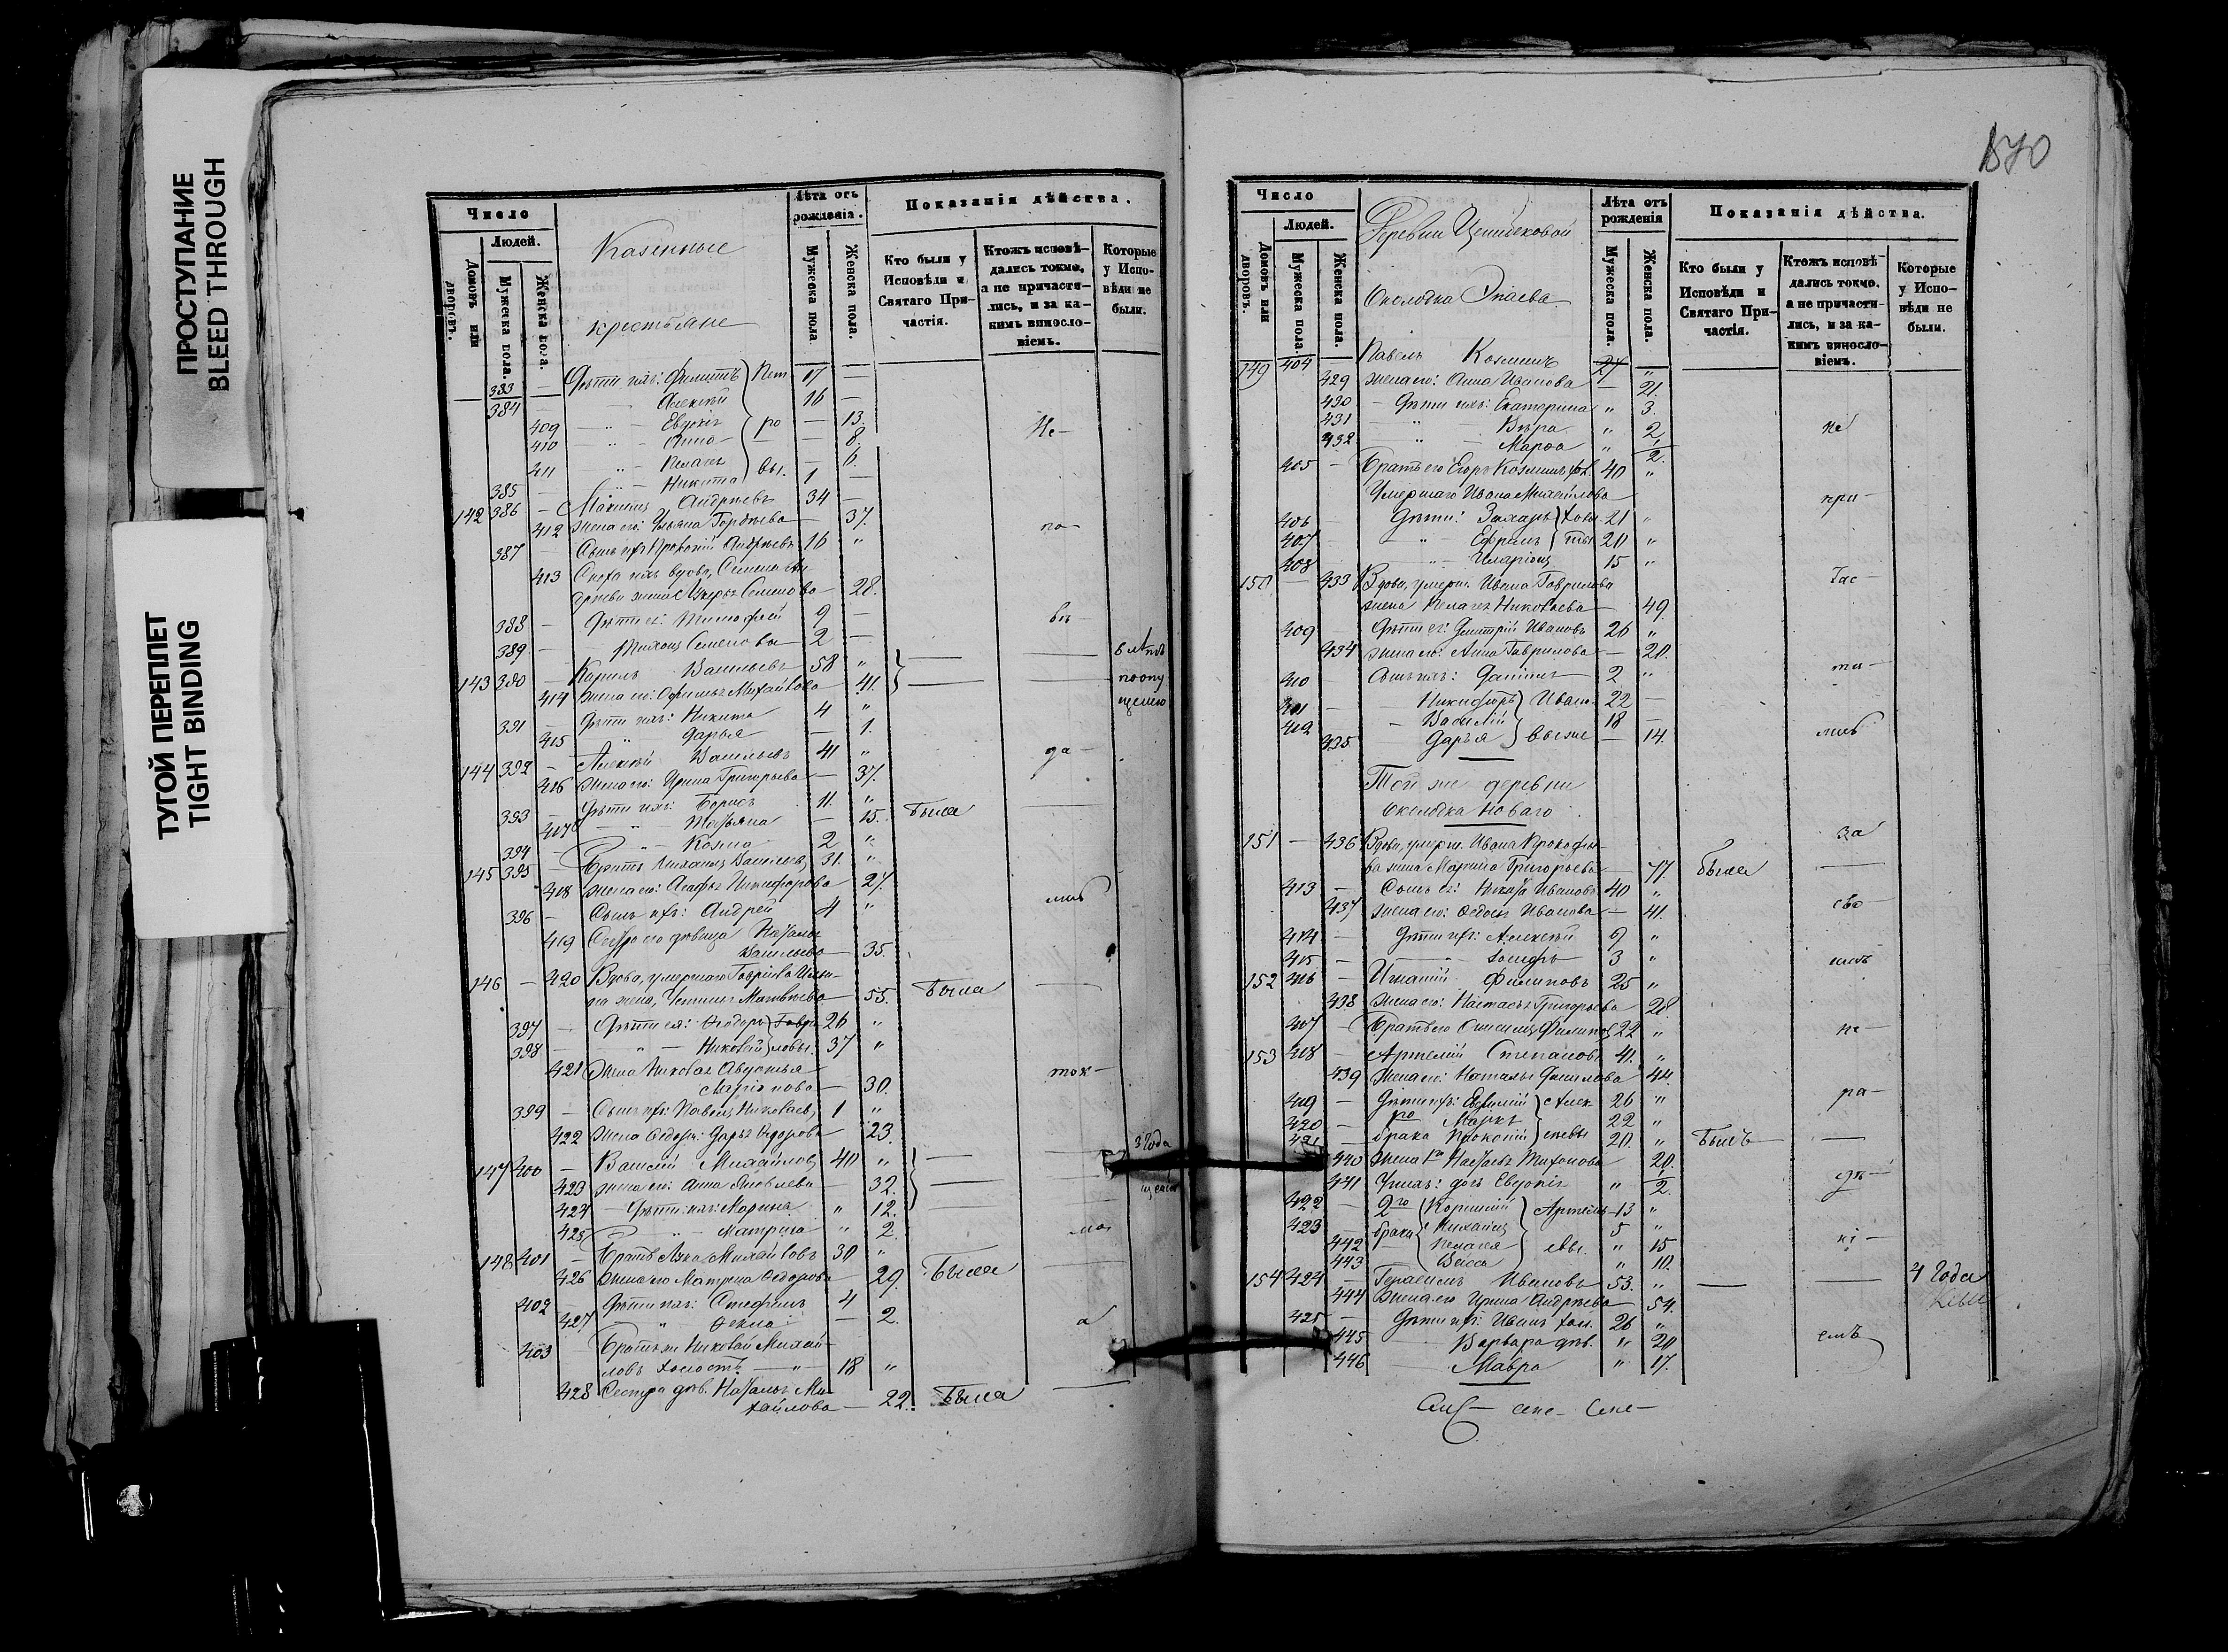 ПРОСТУПАНИЕ
BLEED THROUGH
ТУГОЙ ПЕРЕПЛЕТ
TIGHT BINDING
Число
Людей.
Домовъ или дворовъ.
Мужеска пола.
Женска пола.
Казенные
крестьяне
Лѣта отъ рожденія.
Мужеска пола
Женска пола.
Показанія дѣйства.
Кто были у Исповѣди и Святаго Причастія.
Ктожъ исповѣдались токмо, а не причастились, и за какимъ винословіемъ.
Которые у Исповѣди не были.
383 — Дѣти ихъ: Филиппъ Пет 17 —
384 — Алексѣй 16 —
409 — Евдокія ро — 13.
410 — Анна — 8. Не-
411 — Пелагея — 6.
385 — Никита вы. 1 —
142 386 — Максимъ Андреевъ 34 —
412 Жена его: Ульяна Гордѣева — 37. по-
387 — Сынъ ихъ Прокопій Андреевъ 16 "
413 Сноха ихъ вдова, Семена Ан
дреева жена Семенова — 28.
388 — Дѣти ея: Тимофей 9 — вы-
389 — Тихонъ Семеновы 2 —
143 390 — Кирилъ Васильевъ 58 "
414 Жена его: Михайлова — 41.
391 — Дѣти ихъ: Никита 4 "
415 " Дарья — 1.
144 392 — Алексѣй Васильевъ 41 " да-
416 Жена его: Ирина Григорьева — 37.
393 — Дѣти ихъ: Борисъ 11. "
417 " Татьяна — 15. Была
394 — " Козма 2 "
145 395 — Братъ Михаилъ Васильевъ 31. "
418 Жена его: Агафья Никифорова 27.
396 — Сынъ ихъ: Андрей 4 "
419 Сестра его дѣвица Наталья
Васильева — 35.
146 — 420 Вдова, умершаго Гаврила
жена, Матвѣева 55. Была —
397 — Дѣти ея: Ѳедоръ Гаври 26 "
398 — " Николай ловы. 37 "
421 Жена Николая Авдотья
— 30. ток-
399 — Сынъ ихъ: Павелъ Николаевъ 1 "
422 Жена Ѳедора: Дарья Ѳедорова — 23.
3 года
147 400 — Василій Михайловъ 40 "
423 Жена его: Анна Яковлева — 32.
424 — Дѣти ихъ: Марина " 12.
425 " Матрена " 2.
148 401 — Братъ Лука Михайловъ 30 "
426 Жена его Матрена Ѳедорова 29. Была
402 — Дѣти ихъ: Стефанъ 4
427 " Ѳекла — 2.
403 Братъ ихъ Николай Михай-
ловъ холостъ — 18 "
428 Сестра дѣв. Наталья Ми-
хайлова — 22. Была —
1570
Число
Людей.
Домовъ или дворовъ.
Мужеска пола.
Женска пола.
Деревни
Околодка Опаева
Лѣта отъ рожденія
Мужеска пола.
Женска пола.
Показанія дѣйства.
Кто были у Исповѣди и Святаго Причастія.
Ктожъ исповѣдались токмо, а не причастились, и за какимъ винословіемъ.
Которые у Исповѣди не были.
149 404 Павелъ Козминъ 27 "
429 Жена его: Анна Иванова — 21.
430 — Дѣти ихъ: Екатерина " 3.
431 " Вѣра " 2, не
432 " Марѳа " 1/2.
405 — Братъ его Егоръ Козминъ 40 "
Умершаго Ивана Михайлова при-
406 — Дѣти: Захаръ 21 "
407 — " Ефремъ 20 "
408 — " Иларіонъ 15 "
150 — 433 Вдова, умерш. Ивана Гаврилова час-
жена Пелагея Николаева — 49.
409 — Дѣти ея: Дмитрій Ивановъ 26 "
434 Жена его: Анна Гаврилова — 20.
410 — Сынъ ихъ: Даніилъ 2 " ти-
411 — Никифоръ Ивано- 22 —
412 — Василій 18 —
435 Дарья выже — 14. лись
Той же деревни
Околодка Новаго
151 — 436 Вдова, умерш. Ивана Прокофье- за
ва жена Марина Григорьева — 77. Была —
413 — Сынъ ея: Никита Ивановъ 40 "
437 Жена его: Ѳедосья Иванова — 41. сво-
414 — Дѣти ихъ: Алексѣй 9 "
415 — Іосифъ 3 "
152 416 — Игнатій Филиповъ 25 " имъ
438 Жена его: Настасья Григорьева 28.
417 — Братъ его Филиповъ 22 " не-
153 418 — Артемій Степановъ 41. "
439 Жена его: Наталья Данилова 44.
419 — Дѣти ихъ: Евѳимій 26 " ра-
420 — Маркъ 22 "
421 — брака Прокопій 20. " Былъ —
440 Жена Наталья Тихонова 20.
441 У нихъ: дочь Евдокія " 1/2. дѣ-
422 — 2го Корнилій Артемь- 13 "
423 — брака Михаилъ 5 "
442 Пелагея евы. " 15 ні-
443 Васса " 10.
154 424 — Герасимъ Ивановъ 53. " — — 4 года
444 Жена его Ирина Андрѣева 54.
425 — Дѣти ихъ: Иванъ хол. 26 "
445 Варвара дѣв. " 20 емъ
446 Мавра " 17.